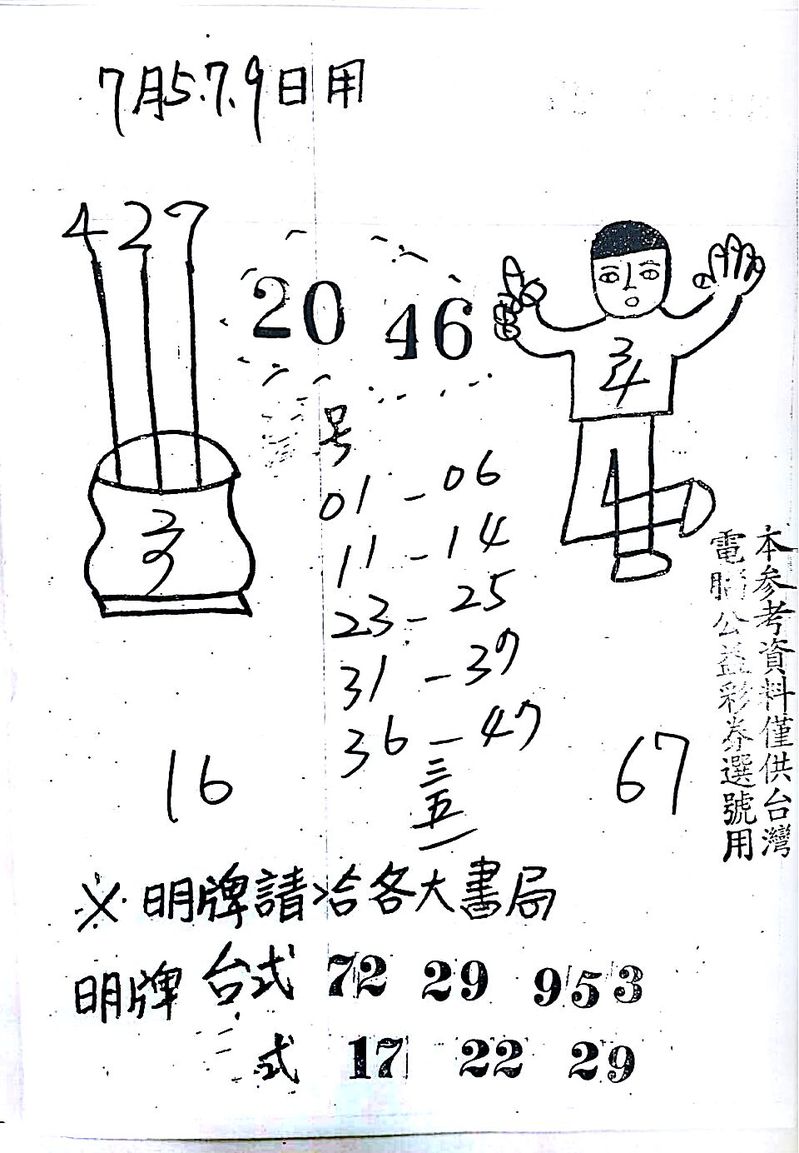 7月5.7.9日用
427
20 46
34
号
01-06
11-14
23-25
31-39
36-47
三
五
16
67
本参考資料僅供台灣
電腦公益彩券選號用
※明牌請洽各大書局
明牌 台式 72 29 953
式 17 22 29